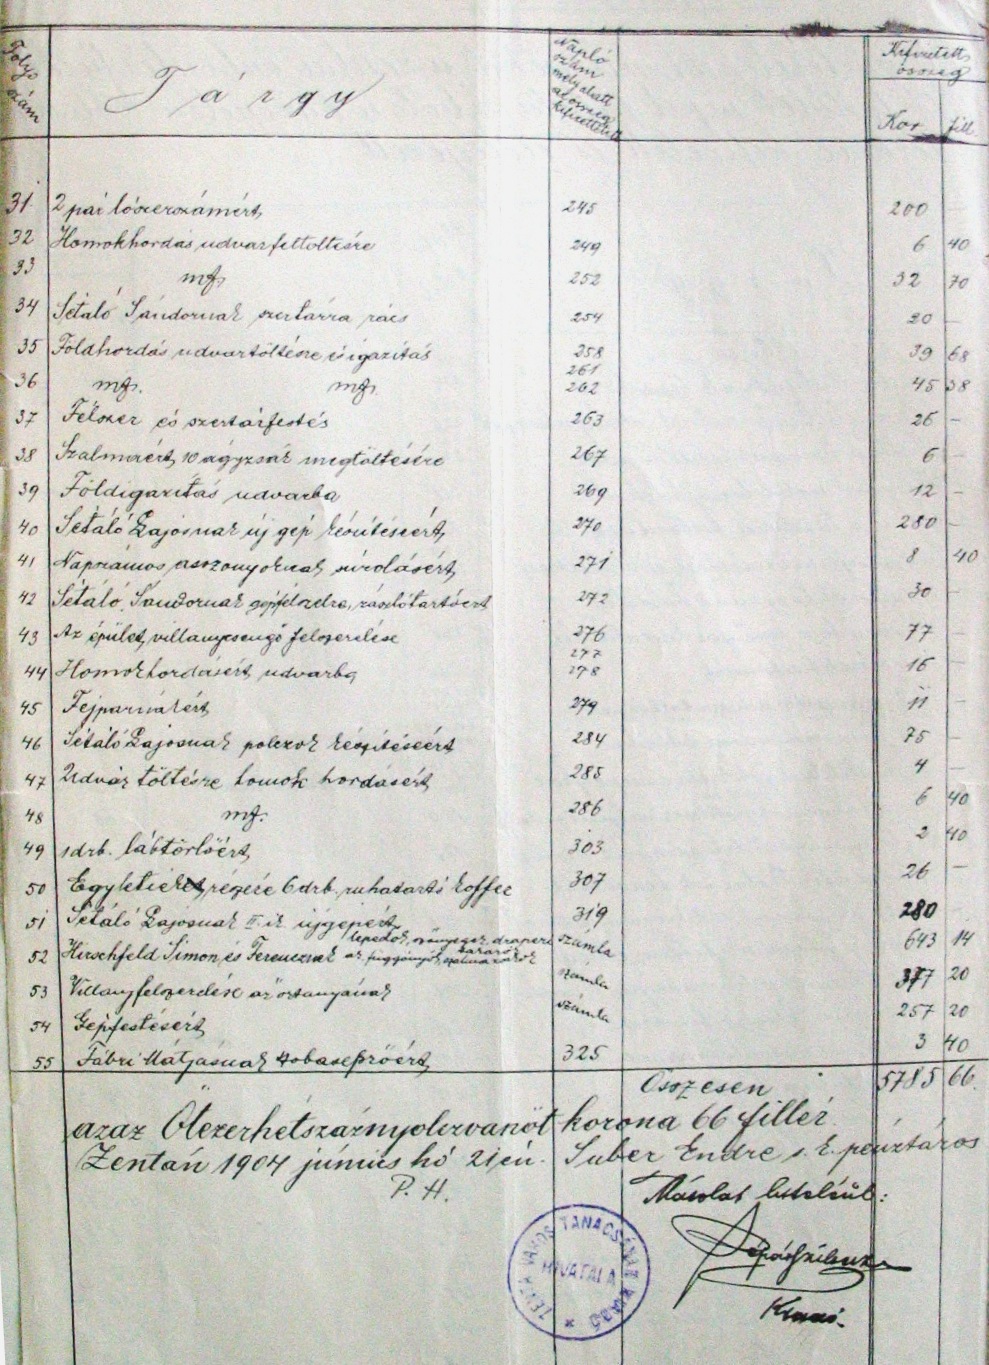 Folyó szám
Tárgy
Napló szám mely alatt az összeg kifizettetett
Kifizetett összeg
Kor fill.
31 2 pár lószerszámért 245 200 —
32 Homokhordás udvarfeltöltésre 249 6 40
33 mf. 252 32 70
34 Sétáló Sándornak szertárra rács 254 20 —
35 Földhordás udvartöltésre és igazitás 258 39 68
36 mf. mf. 261 262 45 38
37 Félszer és szertárfestés 263 26 —
38 Szalmáért, 10 ágyzsák megtöltésére 267 6 —
39 Földigazitás udvarba 269 12 —
40 Sétáló Lajosnak új gép készitéseért 270 280 —
41 Napszámos asszonyoknak súrolásért 271 8 40
42 Sétáló Sándornak zászlótartóért 272 30 —
43 Az épület villanycsengő felszerelése 276 77 —
44 Homokhordásért udvarba 277 278 16 —
45 Fejpárnákért 279 11 —
46 Sétáló Lajosnak polczok készitéseért 284 75 —
47 Udvar töltésre homok hordásért 285 4 —
48 mf. 286 6 40
49 1 drb. lábtörlőért 303 2 40
50 Egyleti részére 6 drb. ruhatartó koffer 307 26 —
51 Sétáló Lajosnak II. ik újgépért 319 280
52 Hirschfeld Simon és Ferencznek lepedők, szőnyegek, az függönyök számla 643 14
53 Villanyfelszerelése az őrtanyának számla 377 20
54 Gépfestésért számla 257 20
55 Fábri Mátyásnak seprőért 325 3 40
Összesen 5785 66
azaz Ötezerhétszáznyolczvanöt korona 66 fillér
Zentán 1904 június hó 21én. Suber Endre s. k. pénztáros
P. H.
Másolat hiteléül:
ZENTA VÁROS TANÁCSÁNAK KIADÓ
HIVATALA
Kiadó.